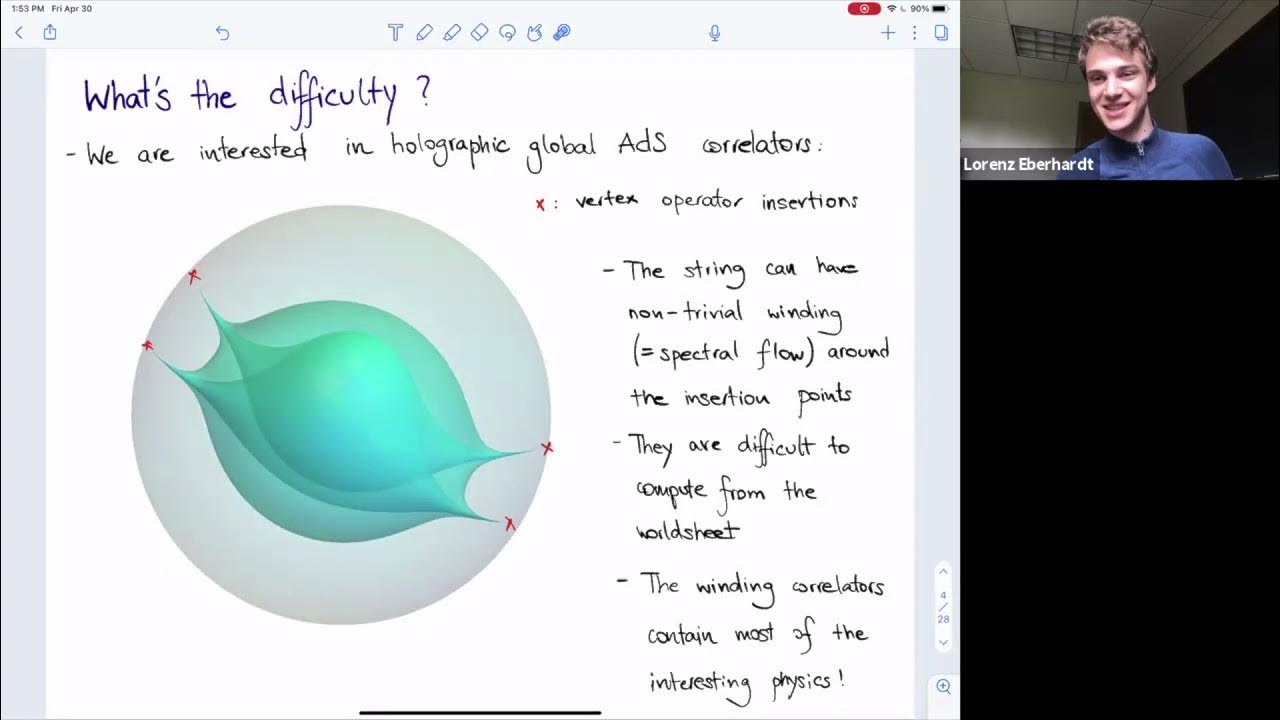 1:53 PM Fri Apr 30
90%
What's the difficulty?
- We are interested in holographic global AdS correlators:
x : vertex operator insertions
- The string can have
non-trivial winding
(= spectral flow) around
the insertion points
- They are difficult to
compute from the
worldsheet
- The winding correlators
contain most of the
interesting physics!
4
/
28
Lorenz Eberhardt